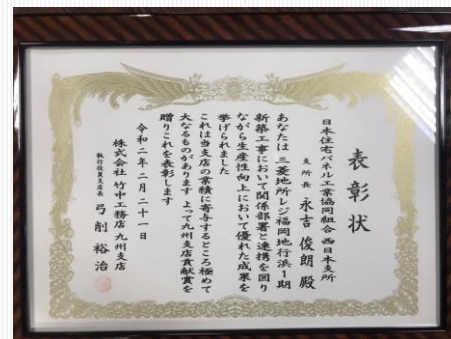 表彰状
日本住宅パネル工業協同組合 西日本支所
支所長 永吉 俊朗 殿
あなたは 三菱地所レジ福岡地行浜1期
新築工事において関係部署と連携を図り
ながら生産性向上において優れた成果を
挙げられました
これは当支店の業績に寄与するところ極めて
大なるものがあります よって九州支店貢献賞を
贈りこれを表彰します
令和二年二月二十一日
株式会社 竹中工務店 九州支店
執行役員支店長 弓削 裕治